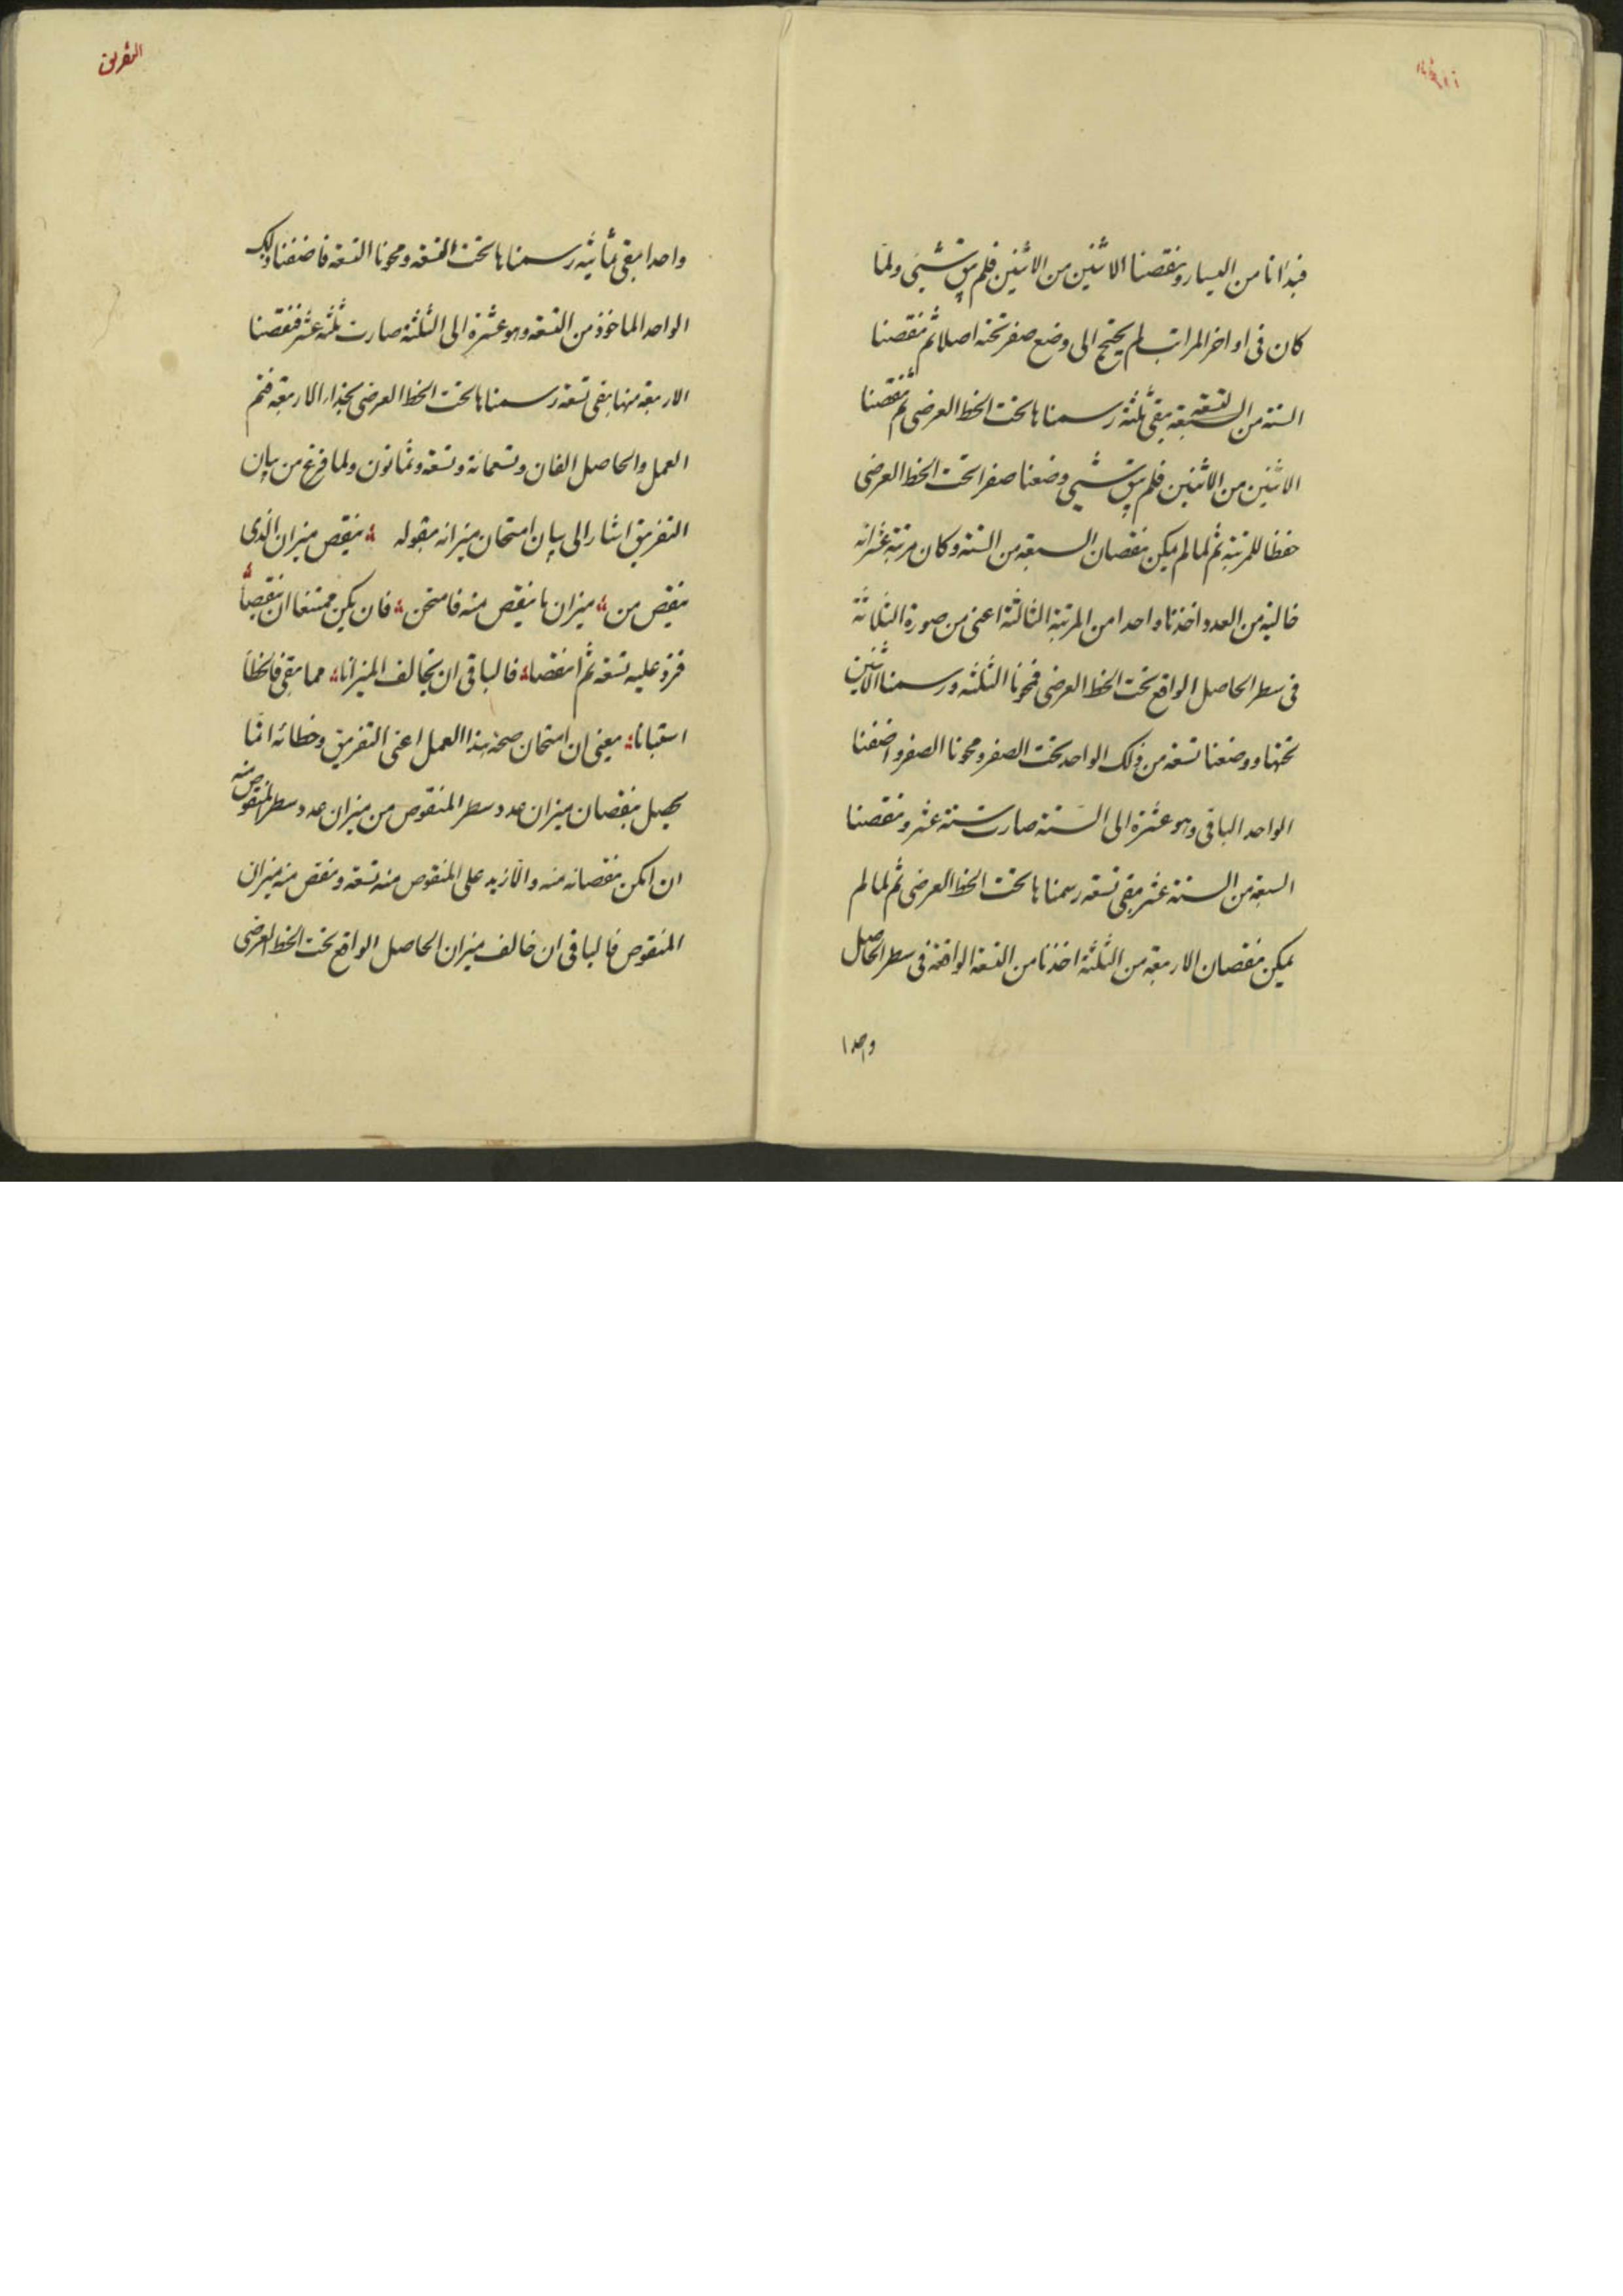 فبدأنا من اليسار ونقصنا الاثنين من الاثنين فلم يبق شيئ ولما
كان فى اواخر المراتب لم يحتج الى وضع صفر تحته اصلا ثم نقصنا
الستة من التسعة يبقى ثلثة رسمناها تحت الخط العرضى ثم نقصنا
الاثنين من الاثنين فلم يبق شيئ وضعنا صفرا تحت الخط العرضى
حفظا للمرتبة ثم لما لم يمكن نقصان السبعة من الستة وكان مرتبة عشراته
خالية من العدد اخذنا واحدا من المرتبة الثالثة اعنى من صورة الثلاثة
فى سطر الحاصل الواقع تحت الخط العرضى فمحونا الثلثة ورسمنا الاثنين
تحتها ووضعنا تسعة من ذلك الواحد تحت الصفر ومحونا الصفر واضفنا
الواحد الباقى وهو عشرة الى الستة صارت ستة عشر ونقصنا
السبعة من الستة عشر بقى تسعة رسمناها تحت الخط العرضى ثم لما لم
يمكن نقصان الاربعة من الثلثة اخذنا من التسعة الواقعة فى سطر الحاصل
واحدا
التفريق
واحدا بقى ثمانية رسمناها تحت التسعة ومحونا التسعة فاضفنا ذلك
الواحد الماخوذ من التسعة وهو عشرة الى الثلثة صارت ثلثة عشر فنقصنا
الاربعة منها بقى تسعة رسمناها تحت الخط العرضى بحذاء الاربعة فتم
العمل والحاصل الفان وتسعمائة وتسعة وثمانون ولما فرغ من بيان
التفريق اشار الى بيان امتحان ميزانه بقوله ينقص ميزان الذى
ينقص من ميزان ما ينقص منه فامتحن فان يكن ممتنعا ان ينقصا
فزد عليه تسعة ثم انقصا فالباقى ان يخالف الميزانا مما بقى فالخطأ
استبانا يعنى ان امتحان صحة هذا العمل اعنى التفريق وخطائه انما
يحصل بنقصان ميزان عدد سطر المنقوص من ميزان عدد سطر المنقوص منه
ان امكن نقصانه منه والا زيد على المنقوص منه تسعة ونقص منه ميزان
المنقوص فالباقى ان خالف ميزان الحاصل الواقع تحت الخط العرضى